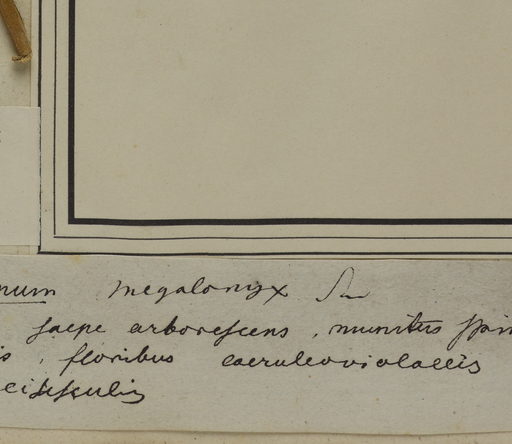 num megalonyx Sm
saepe arborescens, munitus spin
is, floribus caeruleoviolaceis